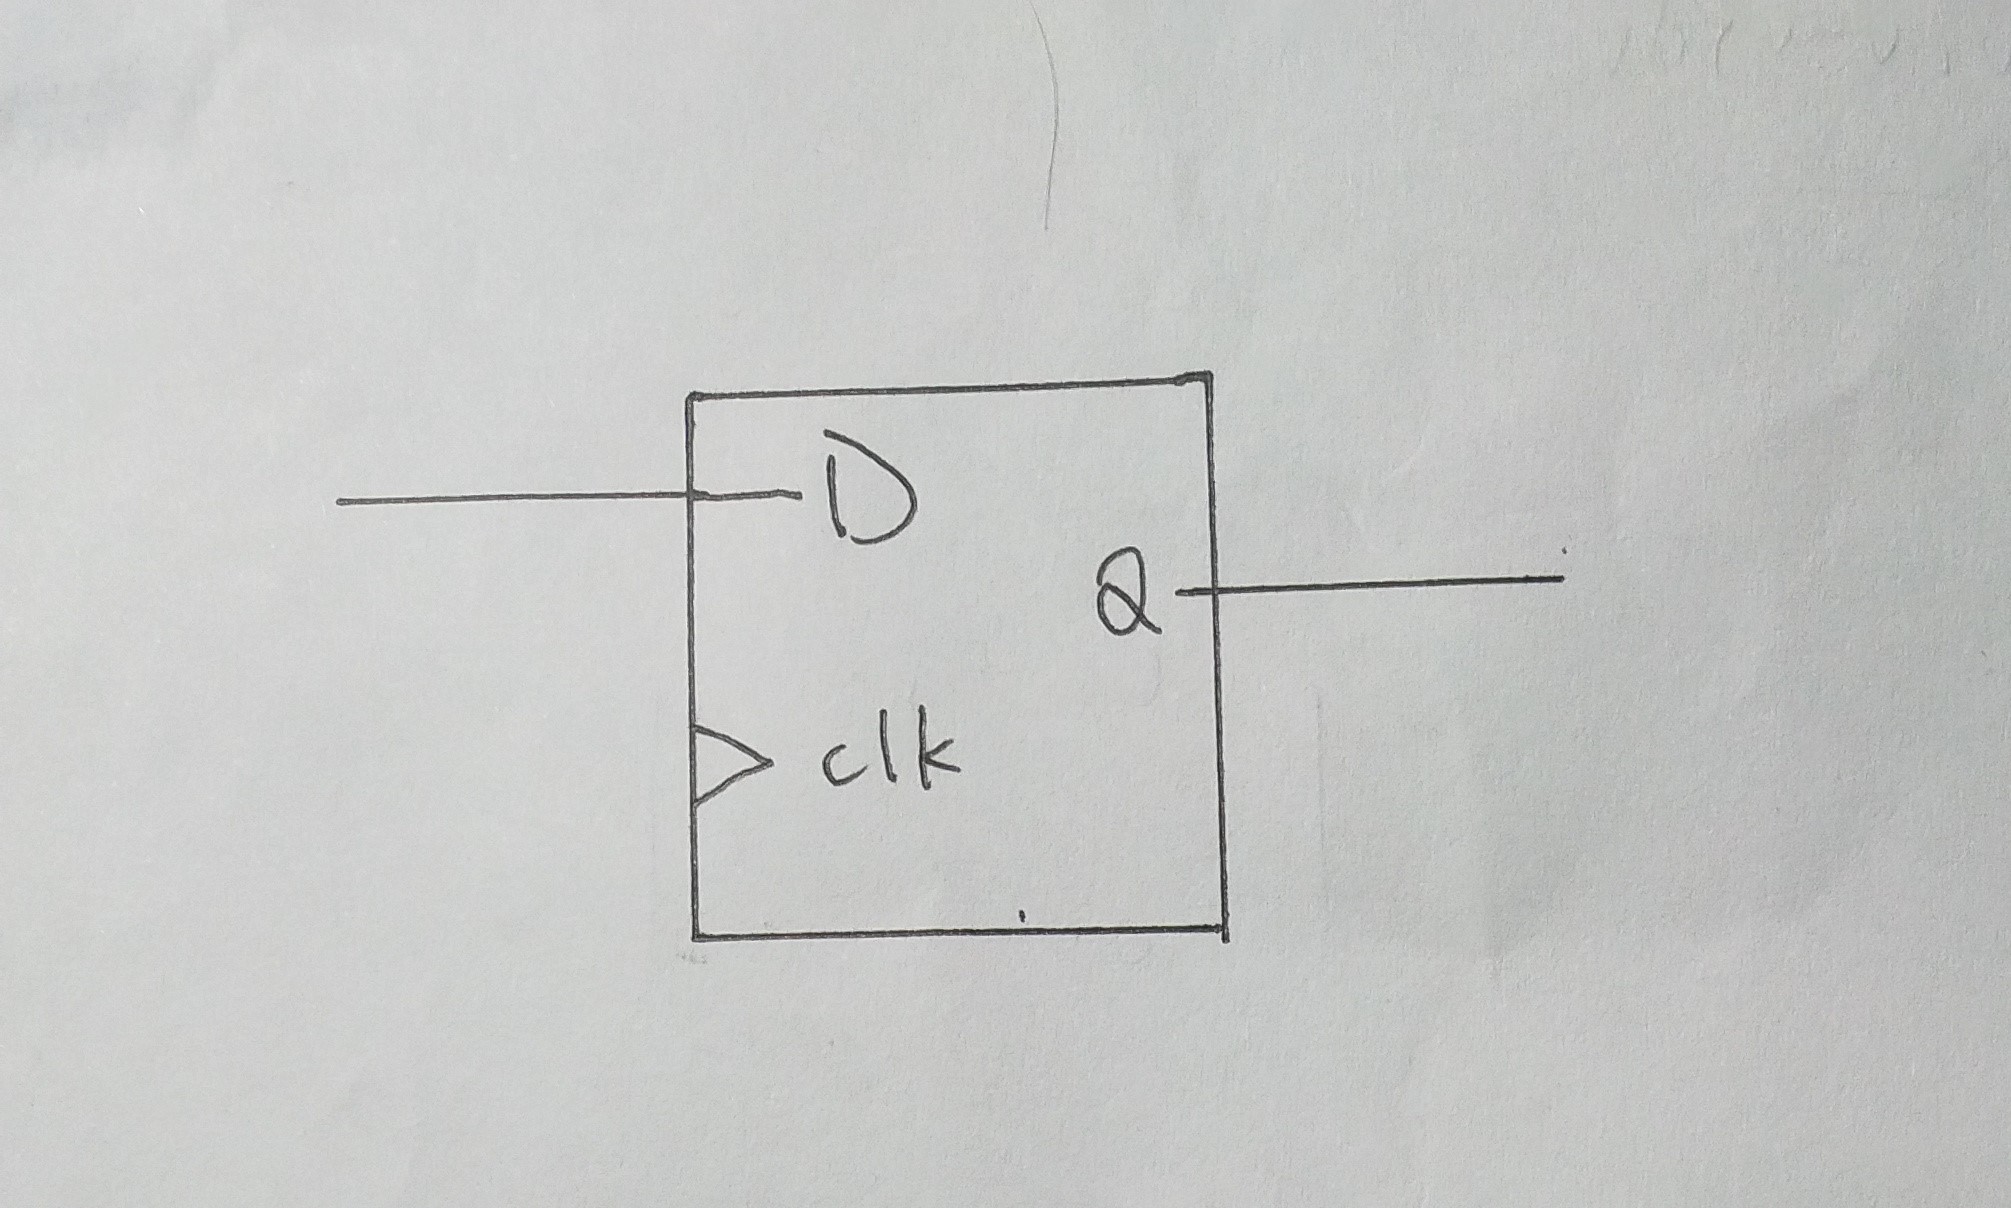 D
Q
clk